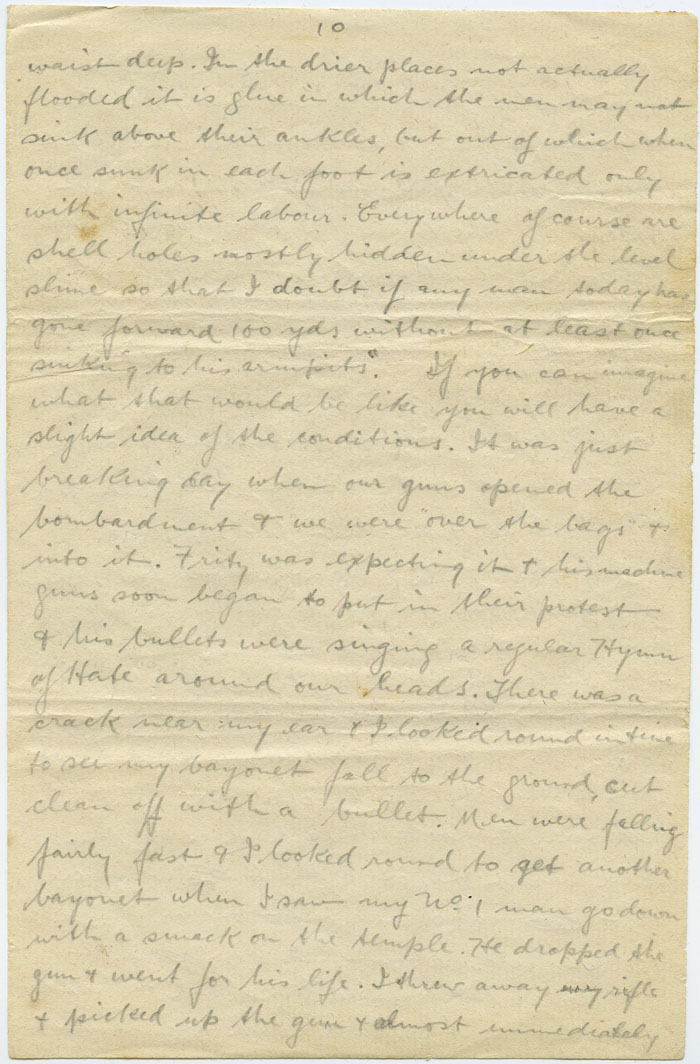 10
waist deep. In the drier places not actually
flooded it is glue in which the men may not
sink above their ankles, but out of which when
once sunk in each foot is extricated only
with infinite labour. Everywhere of course are
shell holes mostly hidden under the level
slime so that I doubt if any man today has
gone forward 100 yds without at least once
sinking to his armpits". If you can imagine
what that would be like you will have a
slight idea of the conditions. It was just
breaking day when our guns opened the
bombardment & we were "over the bags" &
into it. Fritz was expecting it & his machine
guns soon began to put in their protest
& his bullets were singing a regular Hymn
of Hate around our heads. There was a
crack near my ear & I looked round in time
to see my bayonet fall to the ground, cut
clean off with a bullet. Men were falling
fairly fast & I looked round to get another
bayonet when I saw my No. 1 man go down
with a smack on the temple. He dropped the
gun & went for his life. I threw away my rifle
& picked up the gun & almost immediately